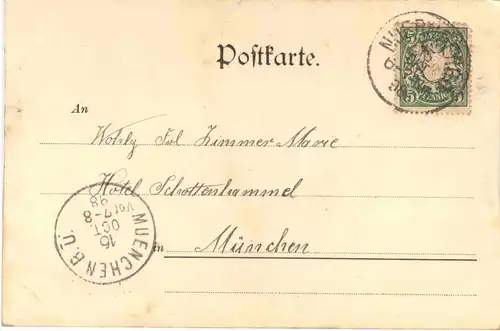 Postkarte.
5 5
PFENNIG
An
Wohlg Frl Zimmer-Marie
Hotel Schottenhammel
in München
MUENCHEN B. U.
16
OCT.
Vor. 7-8
98